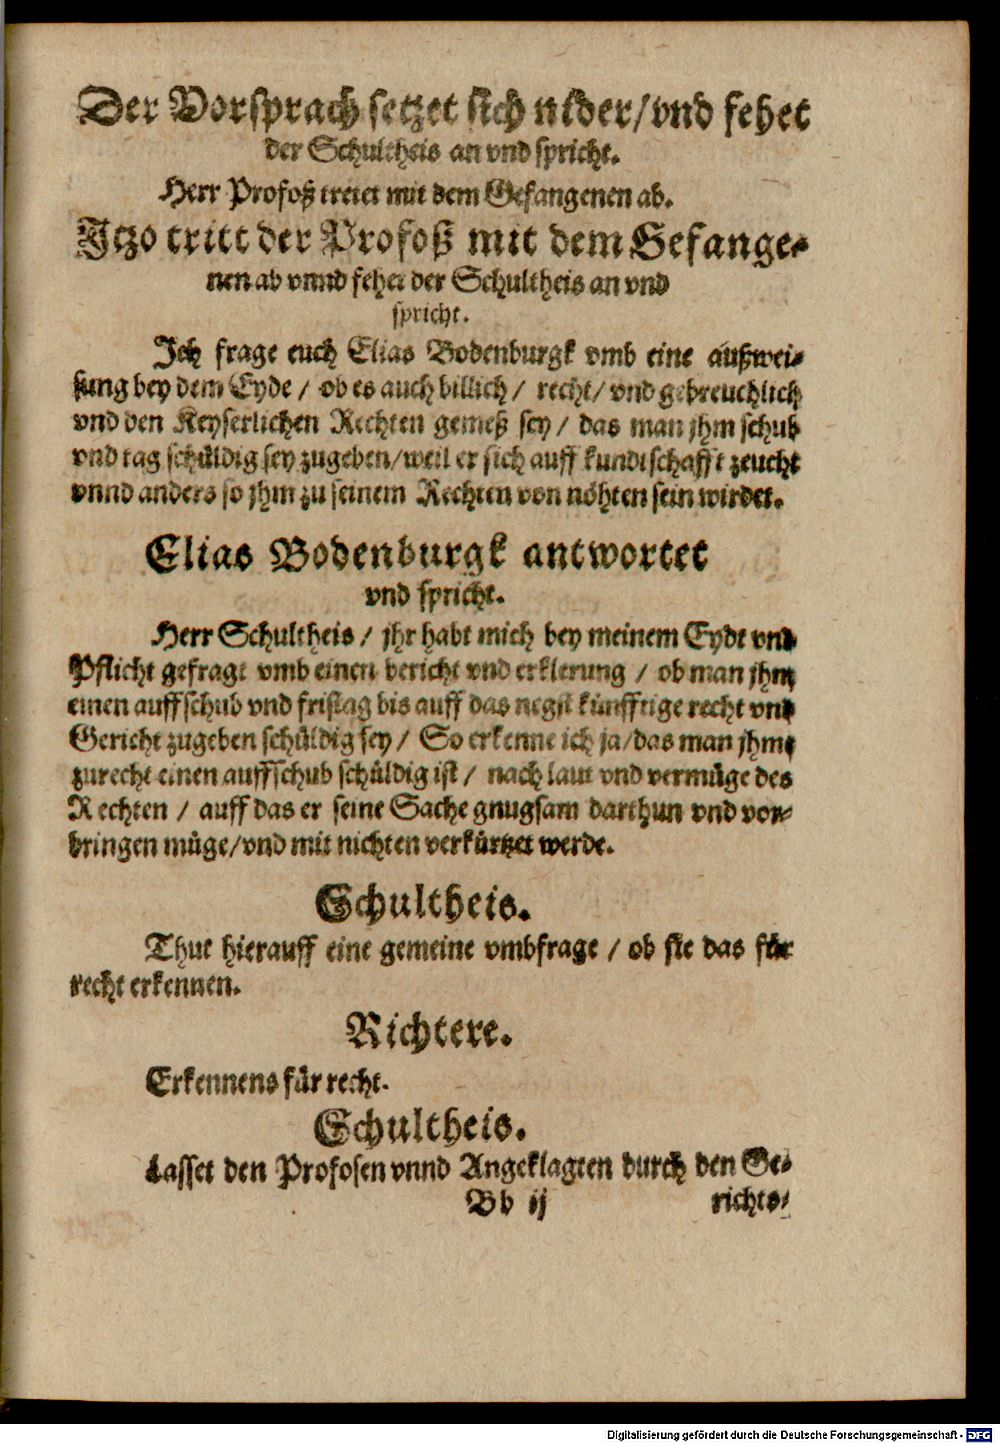 Der Vorsprach setzet sich nider/vnd fehet
der Schultheis an vnd spricht.
Herr Profoß tretet mit dem Gefangenen ab.
Itzo tritt der Profoß mit dem Gefange-
nen ab vnnd fehet der Schultheis an vnd
spricht.
Ich frage euch Elias Bodenburgk vmb eine außwei-
sung bey dem Eyde / ob es auch billich / recht / vnd gebreuchlich
vnd den Keyserlichen Rechten gemeß sey / das man jhm schub
vnd tag schüldig sey zugeben/weil er sich auff kundtschafft zeucht
vnnd anders so jhm zu seinem Rechten von nöhten sein wirdet.
Elias Bodenburgk antwortet
vnd spricht.
Herr Schultheis / jhr habt mich bey meinem Eydt vnd
Pflicht gefraget vmb einen bericht vnd erklerung / ob man jhm
einen auffschub vnd fristag bis auff das negst künfftige recht vnd
Gericht zugeben schüldig sey / So erkenne ich ja/das man jhme
zurecht einen auffschub schüldig ist / nach laut vnd vermüge des
Rechten / auff das er seine Sache gnugsam darthun vnd vor-
bringen müge/vnd mit nichten verkürtzet werde.
Schultheis.
Thut hierauff eine gemeine vmbfrage / ob sie das für
recht erkennen.
Richtere.
Erkennens für recht.
Schultheis.
Lasset den Profosen vnnd Angeklagten durch den Ge-
Bb ij richts-
Digitalisierung gefördert durch die Deutsche Forschungsgemeinschaft - DFG